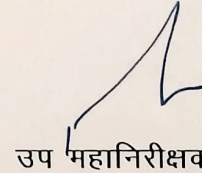 उप महानिरीक्षक